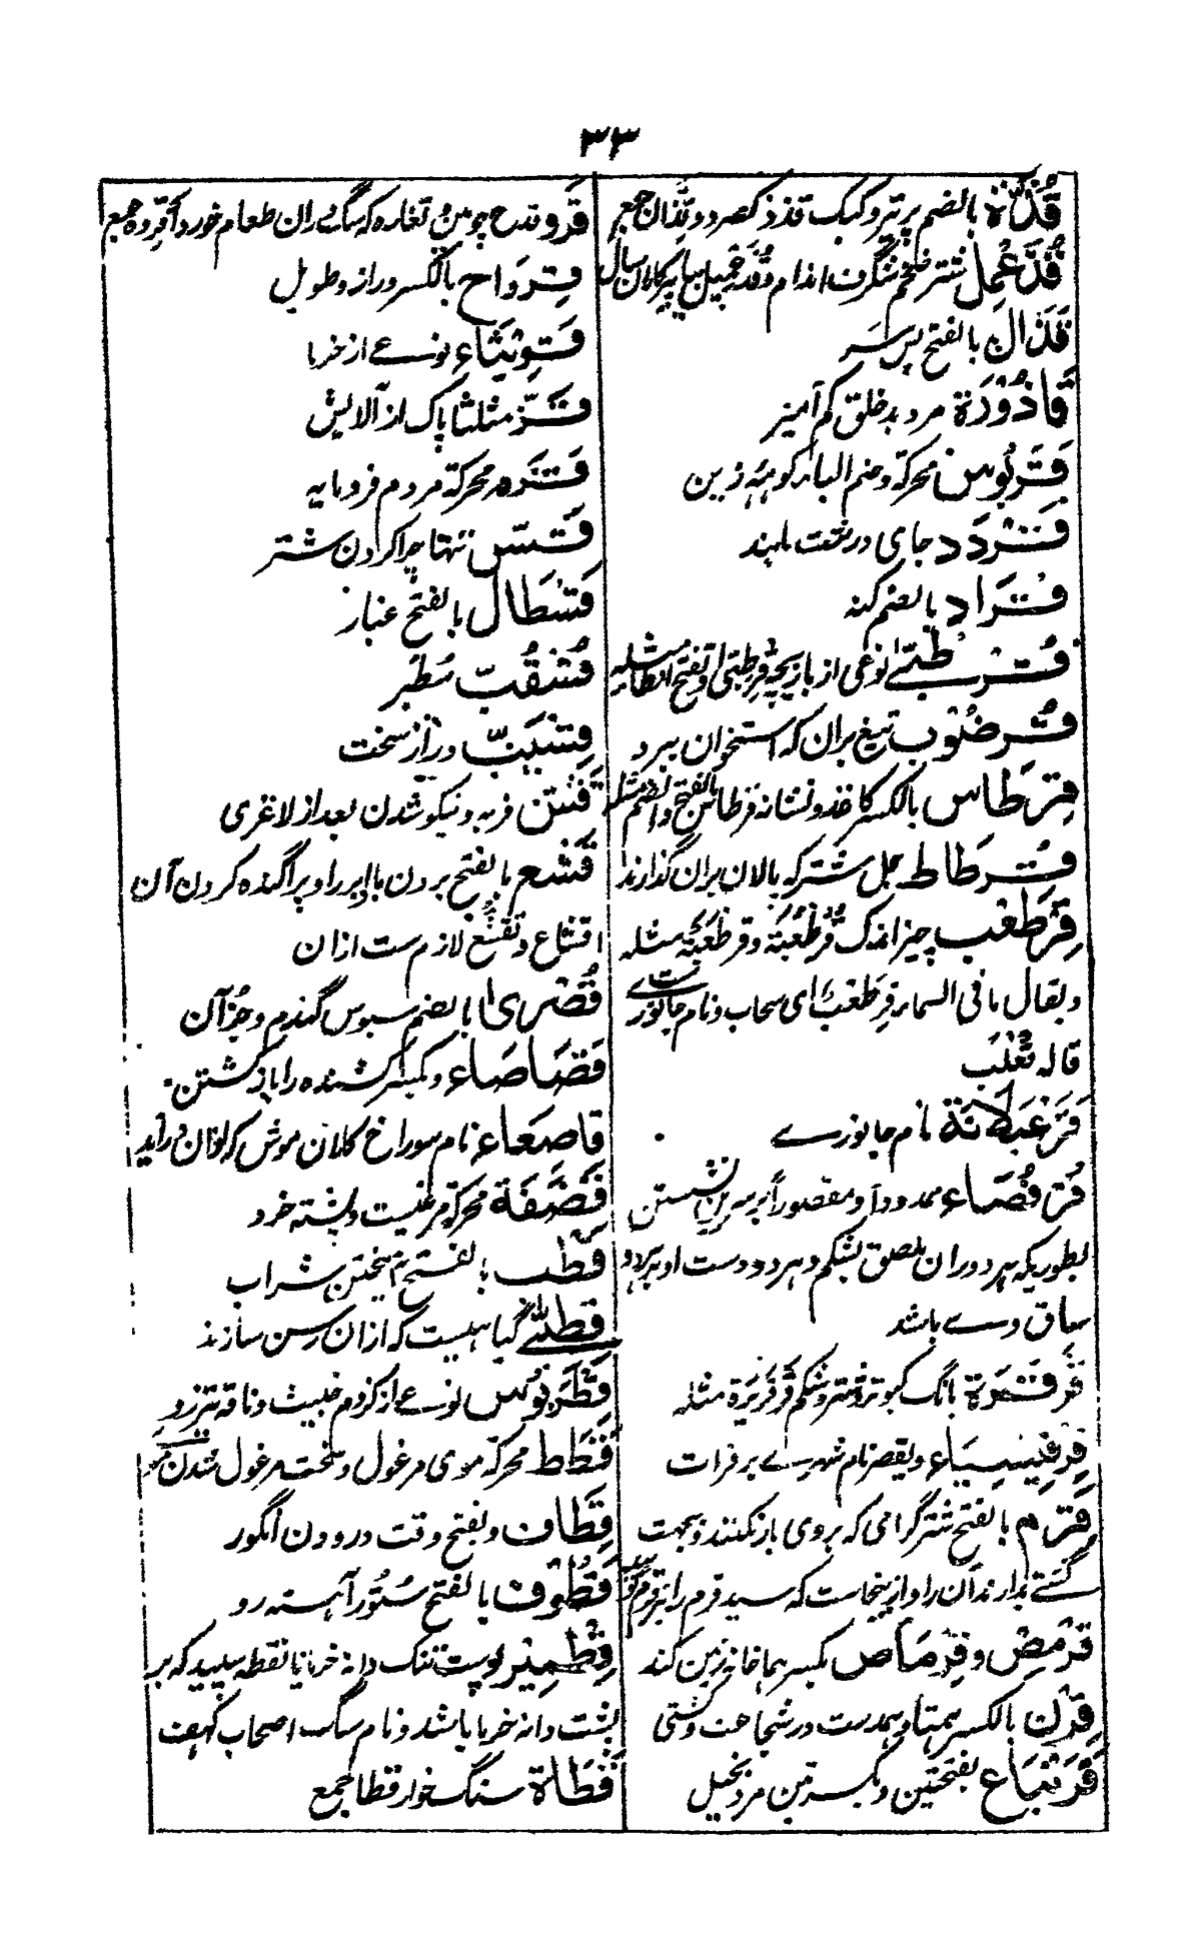 ۳۳
قُذَّة بالضم پر تیر و کیک قذذ کصرد و قِذّان جمع
قُذَعْمِل شتر ضخم شگرف اندام
قَذَال بالفتح پس سر
قَاذُوْرَة مرد بدخلق کم آمیز
قَرَبُوس محرکة وضم الباء کوهه زین
قَرْدَد جای درشت بلند
قُرَاد بالضم کنه
نوعی از بازیچه
قُرضُوب تیغ بران که استخوان ببرد
قِرطَاس بالکسر کاغذ و نشانه قرطاس بالفتح والضم مثله
قُرطَاط جل شتر که پالان بران گذارند
قِرَطعْب چیز اندک قُرُطْعُبَة و قرطَعْبَة مثله
و یقال ما فی السماء قِرَطعْب ای سحاب و نام جانوری
قاله ثَعْلَب
قَرَعْبَلَانَة نام جانورے
قُرفُصَاء ممدوداً و مقصوراً بر سرین نشستن
بطوریکه هر دو ران ملصق بشکم و هر دو دست او بر هر دو
ساق وے باشد
قَرقَرَة بانگ کبوتر و شتر و شکم قَرقَرِیرَة مثله
قِرقِیسِیَاء و یقصر نام شهرے بر فرات
قَرْم بالفتح شتر گرامی که بروی بار نکنند و بجهت
گشنے بدارند آن را و ازینجاست که سید قوم را نیز قرم
قِرْمِص و قِرْمَاص بکسرهما خانه زمین کند
قِرْن بالکسر همتا و همدست در شجاعت و کشتی
بفتحتین و بکسرتین مرد بخیل
قَرْو قدح چوبین و تغاره که سگ دران طعام خورد اَقرُوة جمع
قِرْوَاح بالکسر دراز و طویل
قَرِیْثَاء نوعے از خرما
قَزّ مثلثا پاک از آلایش
قَزَم محرکة مردم فرومایه
قَسّ تنها چرا کردن شتر
قَسْطَال بالفتح غبار
قُسْقُبّ سطبر
قِسْیَبّ دراز سخت
فربه و نیکو شدن بعد از لاغری
قَشع بالفتح بردن باد ابر را و پراگنده کردن آن
اقشاع و تقشّع لازم ست ازان
قُصْرىٰ بالضم سبوس گندم و جز آن
قَصَاصَاء و بکسر کشنده را باز کشتن
قاصِعَاء نام سوراخ کلان موش که ازان درآید
قَضَفَة محرکة مرغیست و پشته خرد
قَطْب بالفتح آمیختن شراب
گیاهیست که ازان رسن سازند
قَطْرَبُوس نوعے از کژدم خبیث و ناقه تیزرو
قَطَط محرکة موی مرغول و سخت مرغول شدن مو
قِطَاف و بفتح وقت درودن انگور
قَطُوف بالفتح ستور آهسته رو
قِطْمِیْر پوست تنک دانه خرما یا نقطه سپید که بر
پشت دانه خرما باشد و نام سگ اصحاب کهف
قَطَاة سنگ خوار قطا جمع